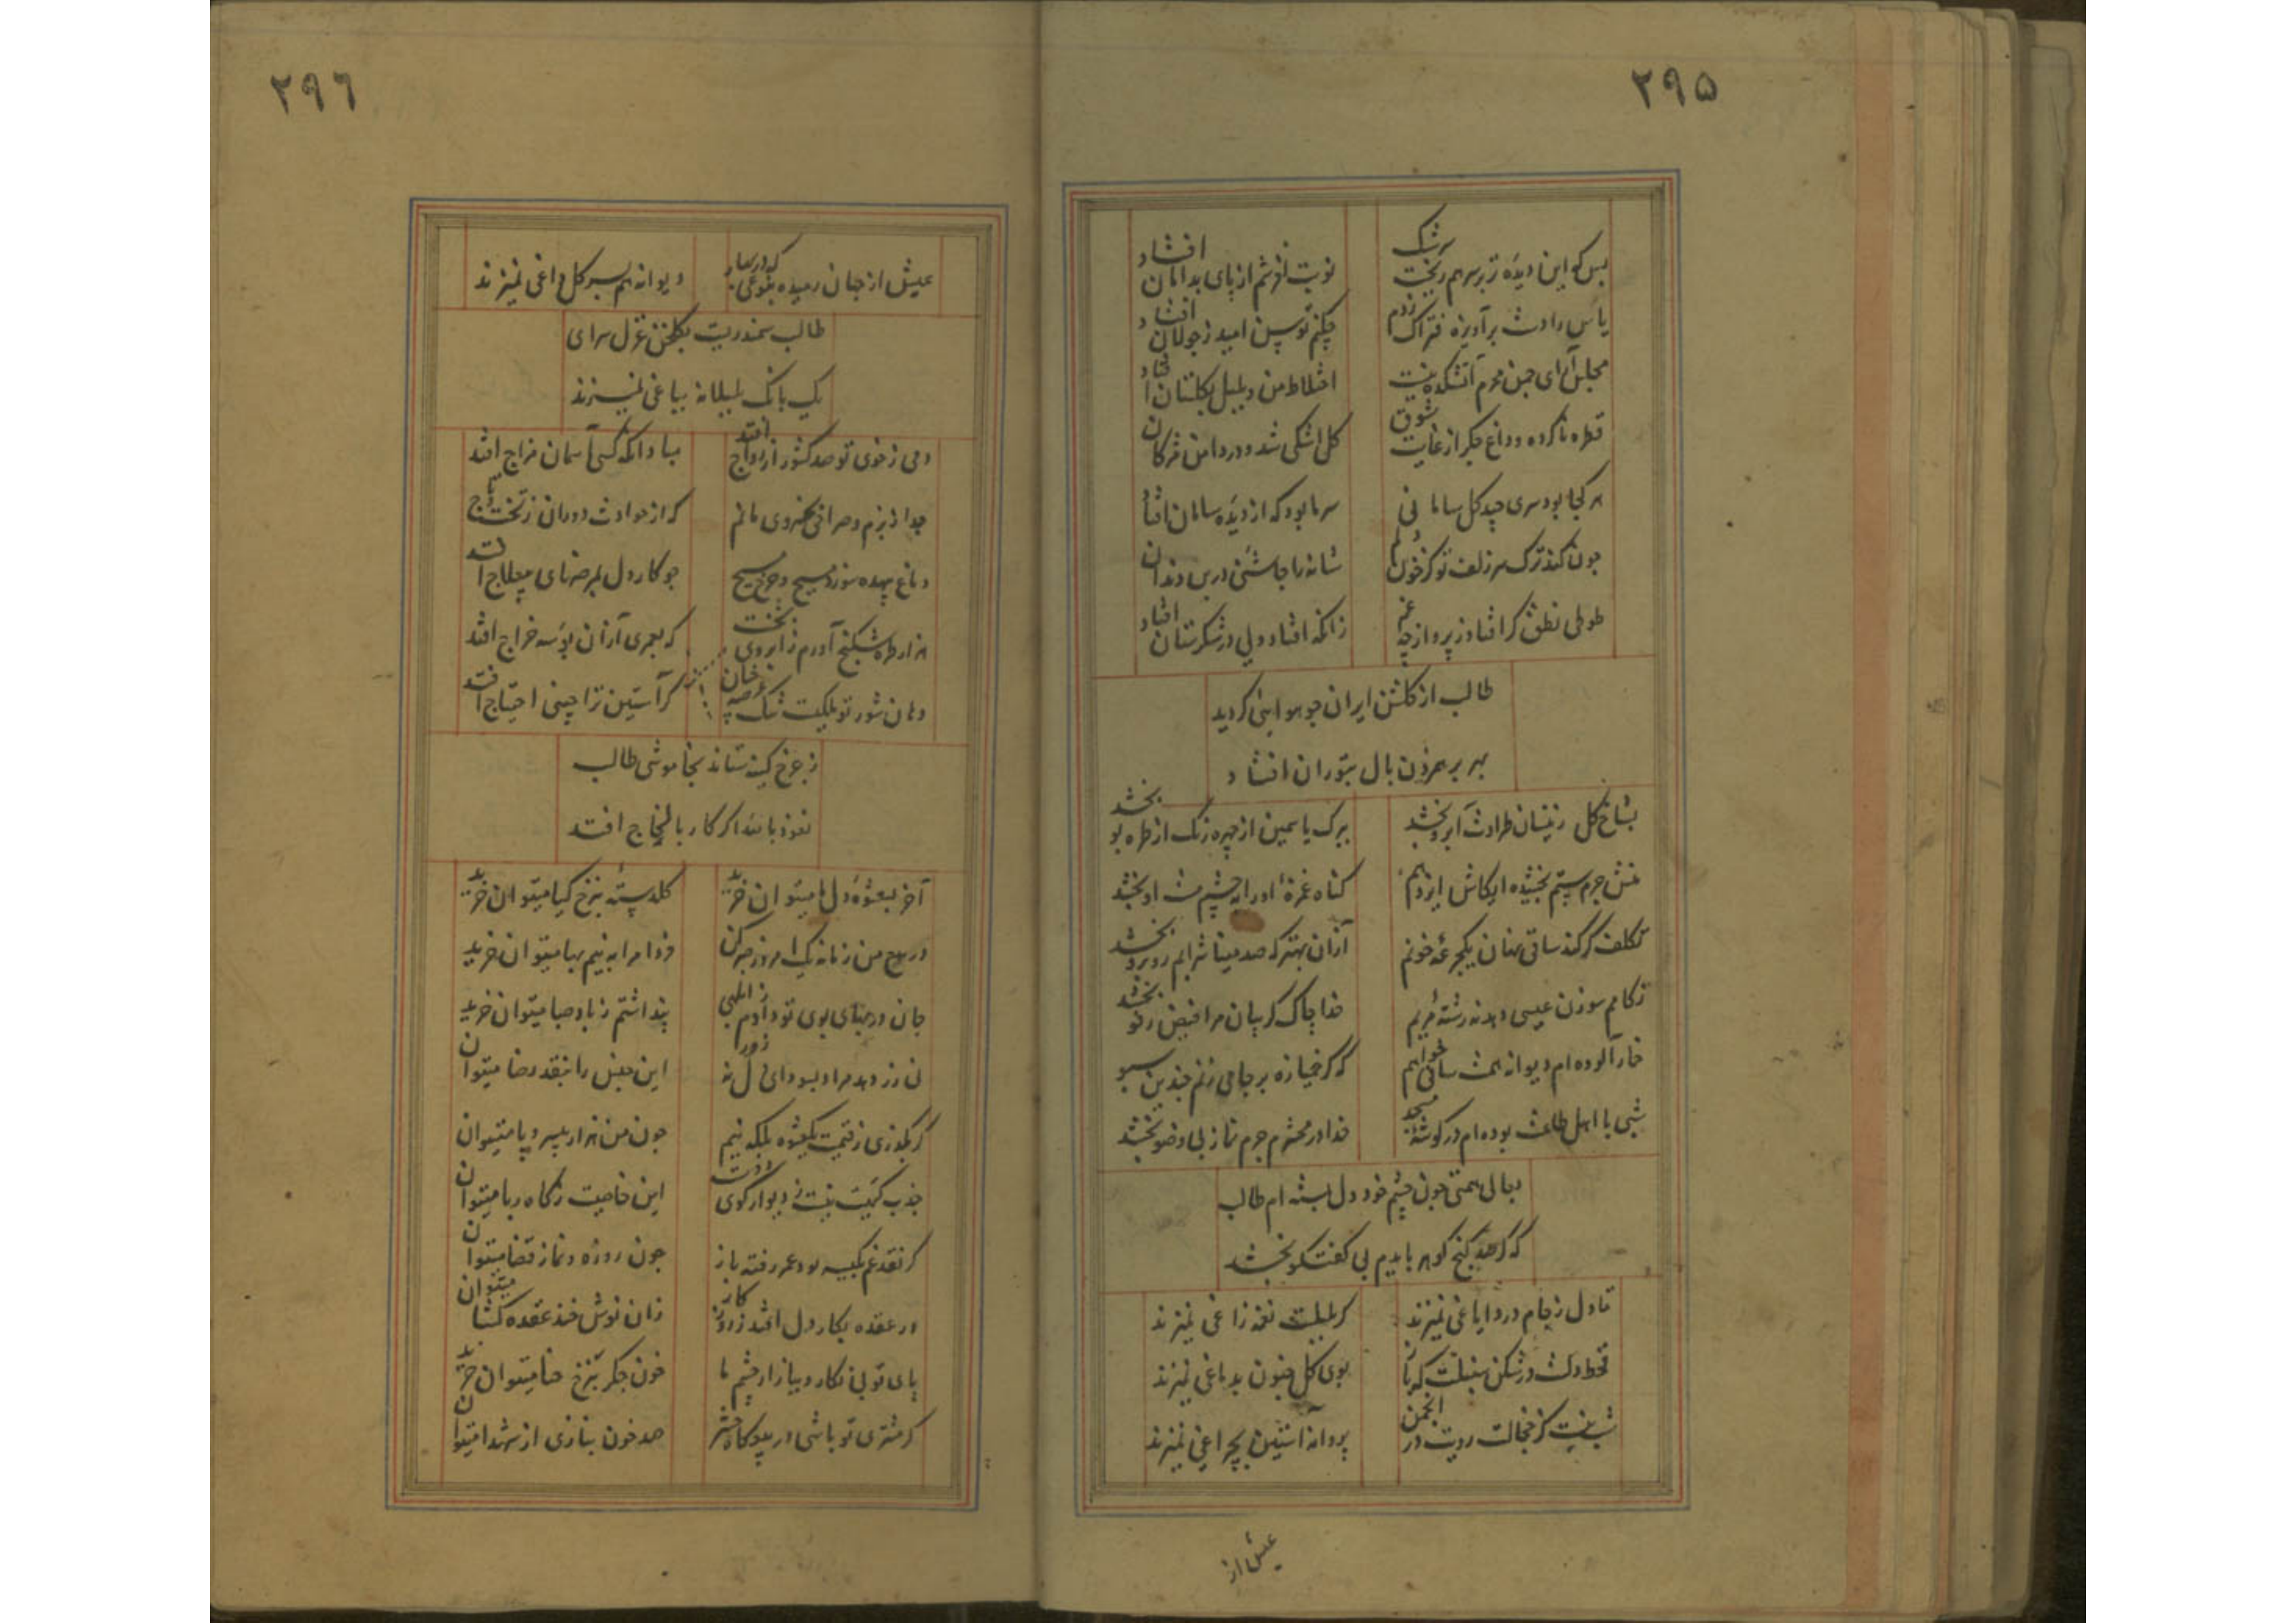 ۲۹۵
بس که این دیده ز بر سر هم ریخت سرشک
نوبت لغزشم از پای بدامان افتاد
یاس را دست برآویزه فتراک زدم
چکنم توسن امید ز جولان افتاد
مجلس آرای چمن محرم آتشکده نیست
اختلاط من و بلبل بگلستان افتاد
قطره ناکرده وداع جگر از غایت شوق
کل اشکی شد و در دامن مژکان
هر کجا بود سری چید کل سامانی
سر ما بود که از دیده سامان افتا
چون کند ترک سر زلف تو کز خون دلم
شانه را چاشنی در بن دندان
طوطی نطق کر افتاد ز پرواز چه غم
زانکه افتاد ولی در شکرستان افتاد
طالب از کلشن ایران چو هوایی کردید
بهر بر هم زدن بال بتوران افتاد
بشاخ کل ز نیسان طراوت آبرو بخشد
ببرک یاسمین از چهره رنک از طره بو بخشد
منش جرم ستم بخشیده ایکاش ایزد هم
کناه غمزه او را بچشم مست او بخشد
تکلف کر کند ساقی بمنان یکجرعه خونم
از آن بهتر که صد مینا شرابم روبرو بخشد
نکاهم سوزن عیسی دهد نه رشته مریم
خدا چاک کریبان مرا فیض رفو بخشد
خمار آلوده ام دیوانه همت ساقی خواهم
که کر خمیازه بر جامی زنم چندین سبو
شبی با اهل طاعت بوده ام در کوشه مسجد
خدا در محشرم جرم نماز بی وضو بخشد
بحالی همتی چون چشم خود دل بسته ام طالب
که کر صد کنج کوهر بایدم بی کفتکو بخشد
تا دل ز جام درد ایاغی نمیزند
کر بلبلست نغمه زاغی نمیزند
قحط دلست در شکن سنبلت که باز
بوی کل جنون بدماغی نمیزند
شب نیست کز خجالت رویت در انجمن
پروانه آستین بچراغی نمیزند
عیش از
۲۹۶
عیش از جهان رمیده بنوعی که در بهار
دیوانه هم بسر کل داغی نمیزند
طالب سمندریست بکلخن غزل سرای
یک بانک بلبلانه بباغی نمیزند
دمی ز خوی تو صد کشور از رواج افتد
مبادا آنکه کسی آسمان مزاج افتد
جدا ز بزم و صراحی بخسروی مانم
که از حوادث دوران ز تخت و تاج
دماغ بیهده سوزد مسیح و چرخ مسیح
چو کار دل بمرضهای بیعلاج افتد
هزار طره شکنج آورم ز ابروی بخت
که بعمری از آن بوسه خراج افتد
دهان شور تو بملکیت تنک عرصه چنان
کر آستین ترا چینی احتیاج افتد
ز چرخ کینه ستاند بخاموشی طالب
نعوذ بالله اکر کار با لجاج افتد
آخر بعشوه دل ما میتوان خرید
کلدسته بنرخ کیا میتوان خرید
در بیع من زمانه یک امروز جبر کن
فردا مرا به نیم بها میتوان خرید
جان در بهای بوی تو دادم ز ابلهی
پنداشتم ز باد صبا میتوان خرید
نی زر دهد مراد بسودای دل نه زور
این جنس را بنقد رضا میتوان
کر بکذری ز قیمت یکعشوه بلکه نیم
چون من هزار بیسر و پا میتوان
جذب کهیست نیست ز دیوار کوی دوست
این خاصیت ز کاه ربا میتوان
کر نقد غم بکیسه بود عمر رفته باز
چون روزه و نماز قضا میتوان
در عقده بکار دل افتد ز روزکار
زان نوش خند عقده کشا میتوان
پای تو بی نکار و ببازار چشم ما
خون جکر بنرخ حنا میتوان خرید
کر مشتری تو باشی در بیعکاه حشر
صد خون بنازی از شهدا میتوان